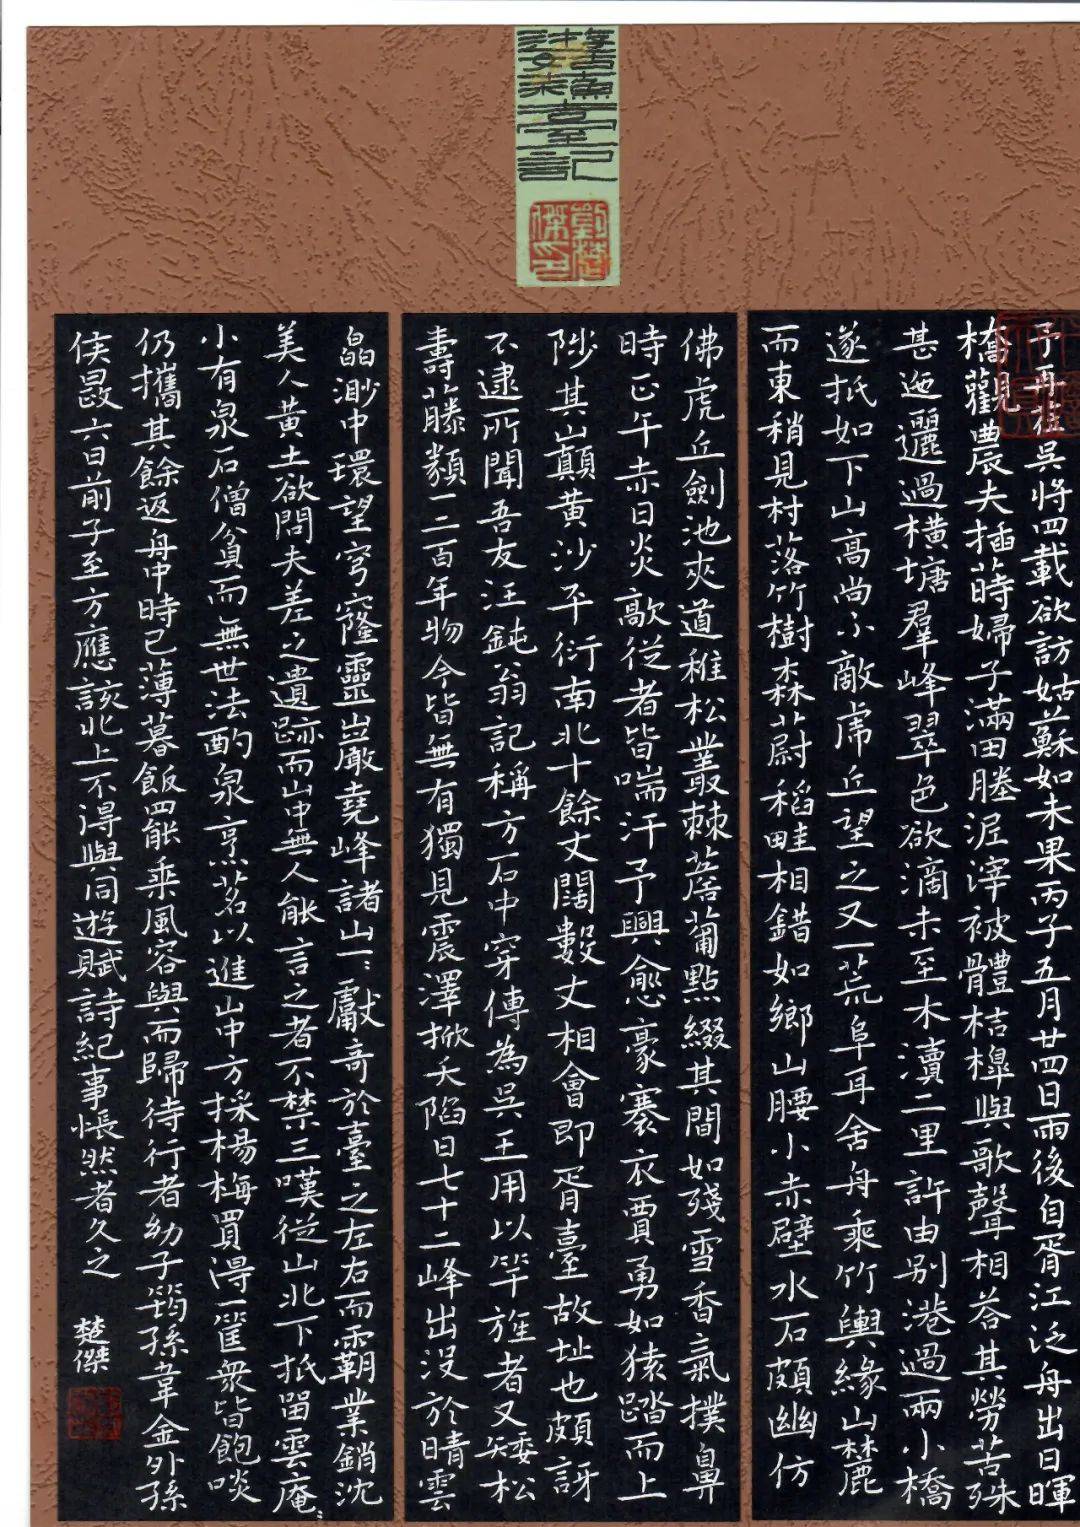 遊姑蘇臺記
予再莅吳將四載欲訪姑蘇如未果丙子五月廿四日雨後自胥江泛舟出日暉
橋觀農夫插蒔婦子滿田塍泥滓被體桔槔與歌聲相荅其勞苦殊
甚迤邐過橫塘羣峰翠色欲滴未至木瀆二里許由別港過兩小橋
遂抵如下山高尚不敵虎丘望之又一荒阜耳舍舟乘竹輿緣山麓
而東稍見村落竹樹森蔚稻畦相錯如鄉山腰小赤壁水石頗幽仿
佛虎丘劍池夾道稚松叢棘薝蔔點綴其間如殘雪香氣撲鼻
時正午赤日炎歊從者皆喘汗予興愈豪褰衣賈勇如猿踏而上
陟其巔黃沙平衍南北十餘丈闊數丈相會即胥臺故址也頗訝
不逮所聞吾友汪鈍翁記稱方石中穿傳為吳王用以竿旌者又矮松
壽藤類一二百年物今皆無有獨見震澤掀天陷日七十二峰出沒於晴雲
皛渺中環望穹窿靈岩嶯堯峰諸山〻獻奇於臺之左右而霸業銷沈
美人黃土欲問夫差之遺跡而山中無人能言之者不禁三嘆從山北下抵畱雲庵〻
小有泉石僧貧而無世法酌泉烹茗以進山中方採楊梅買得一筐眾皆飽啖
仍攜其餘返舟中時已薄暮飯罷乘風容與而歸待行者幼子筠孫韋金外孫
侯晸六日前子至方應該北上不得與同遊賦詩紀事悵然者久之
楚傑